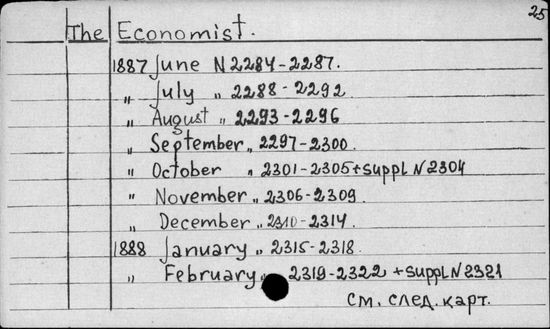 25
The Economist.
1887 June N 2284-2287.
„ July „ 2288-2292
„ August „ 2293-2296
„ September „ 2297-2300.
„ October „ 2301-2305+suppl N 2304
„ November „ 2306-2309.
„ December „ 2310-2314.
1888 January „ 2315-2318.
„ February „ 2319-2322 +suppl N 2321
См. след. карт.